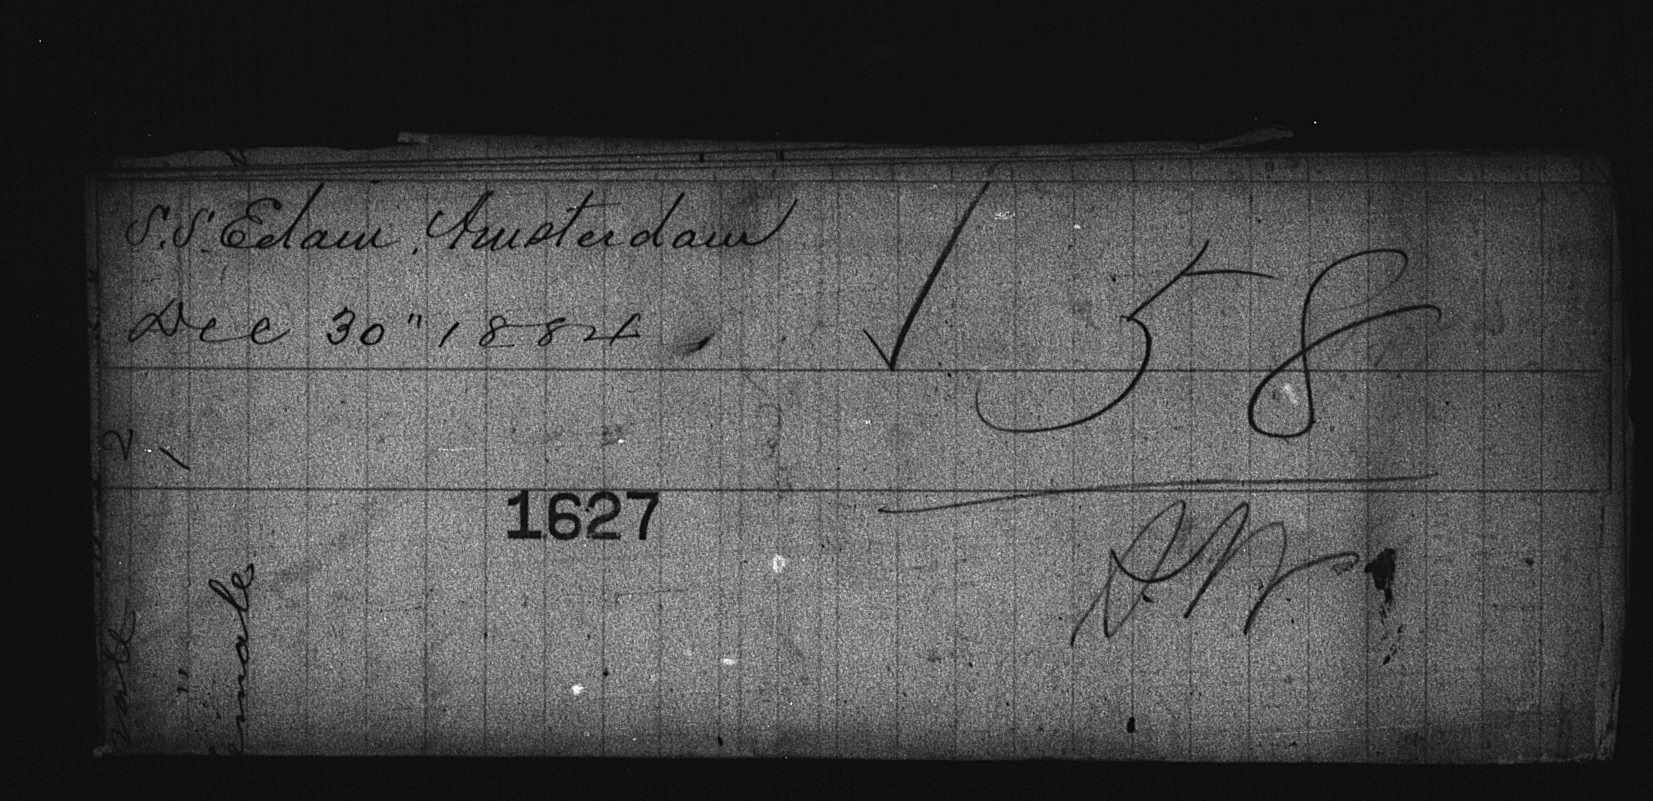 S.S. Edam, Amsterdam
Dec 30" 1884
58
1627
2
male
"
emale